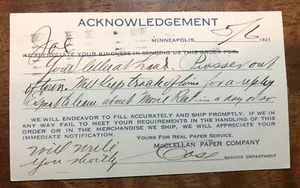 ACKNOWLEDGEMENT
MINNEAPOLIS, 5/6 1921
Joe
WE APPRECIATE YOUR KINDNESS IN SENDING US THIS ORDER FOR:
Your letter at hand. Prosser out
of town. Will keep track of him for a reply
expect to learn about in a day or so
WE WILL ENDEAVOR TO FILL ACCURATELY AND SHIP PROMPTLY. IF WE IN
ANY WAY FAIL TO MEET YOUR REQUIREMENTS IN THE HANDLING OF THIS
ORDER OR IN THE MERCHANDISE WE SHIP, WE WILL APPRECIATE YOUR
IMMEDIATE NOTIFICATION.
YOURS FOR REAL PAPER SERVICE.
will write
you shortly
McCLELLAN PAPER COMPANY
SERVICE DEPARTMENT